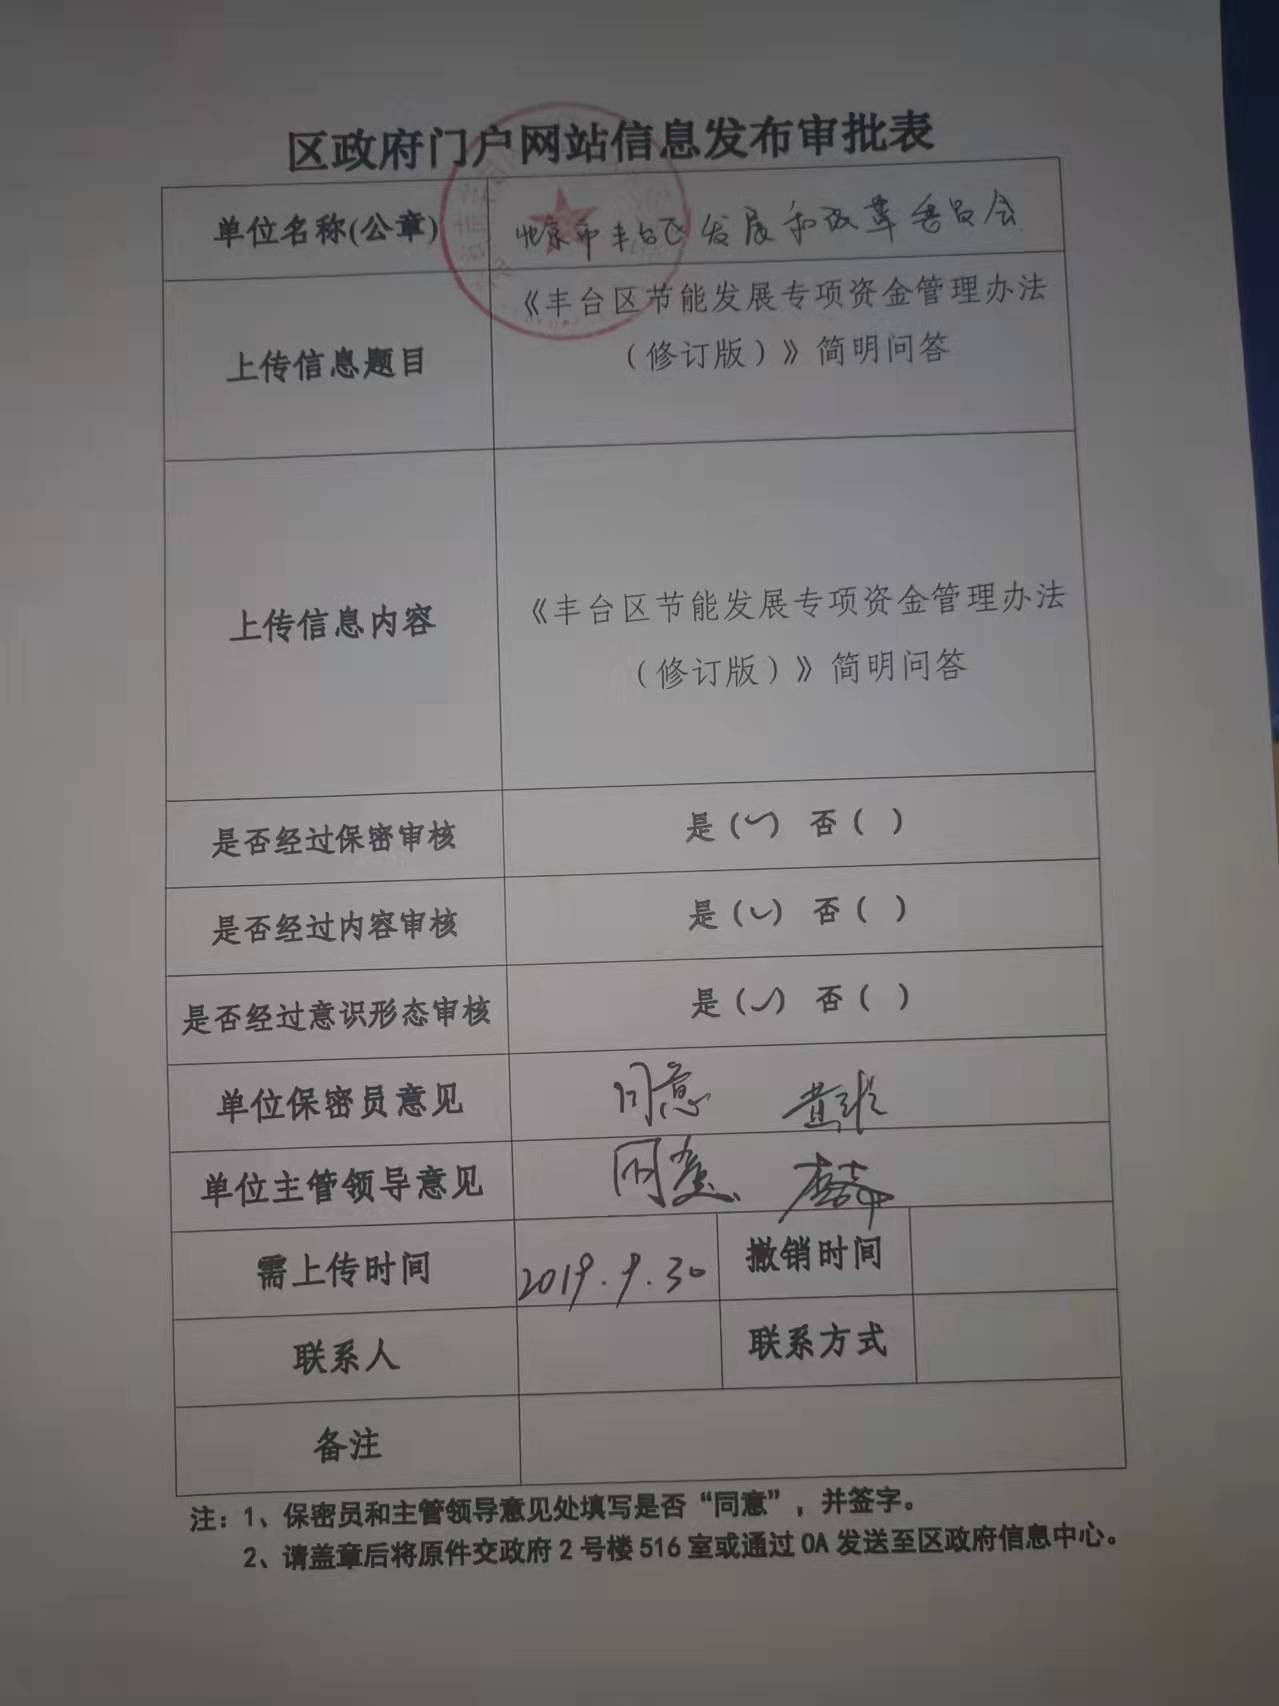 区政府门户网站信息发布审批表
单位名称(公章)
北京市丰台区发展和改革委员会
上传信息题目
《丰台区节能发展专项资金管理办法
（修订版）》简明问答
上传信息内容
《丰台区节能发展专项资金管理办法
（修订版）》简明问答
是否经过保密审核
是(✓) 否( )
是否经过内容审核
是(✓) 否( )
是否经过意识形态审核
是(✓) 否( )
单位保密员意见
同意
单位主管领导意见
同意
需上传时间
2019.9.30
撤销时间
联系人
联系方式
备注
注：1、保密员和主管领导意见处填写是否“同意”，并签字。
2、请盖章后将原件交政府2号楼516室或通过OA发送至区政府信息中心。